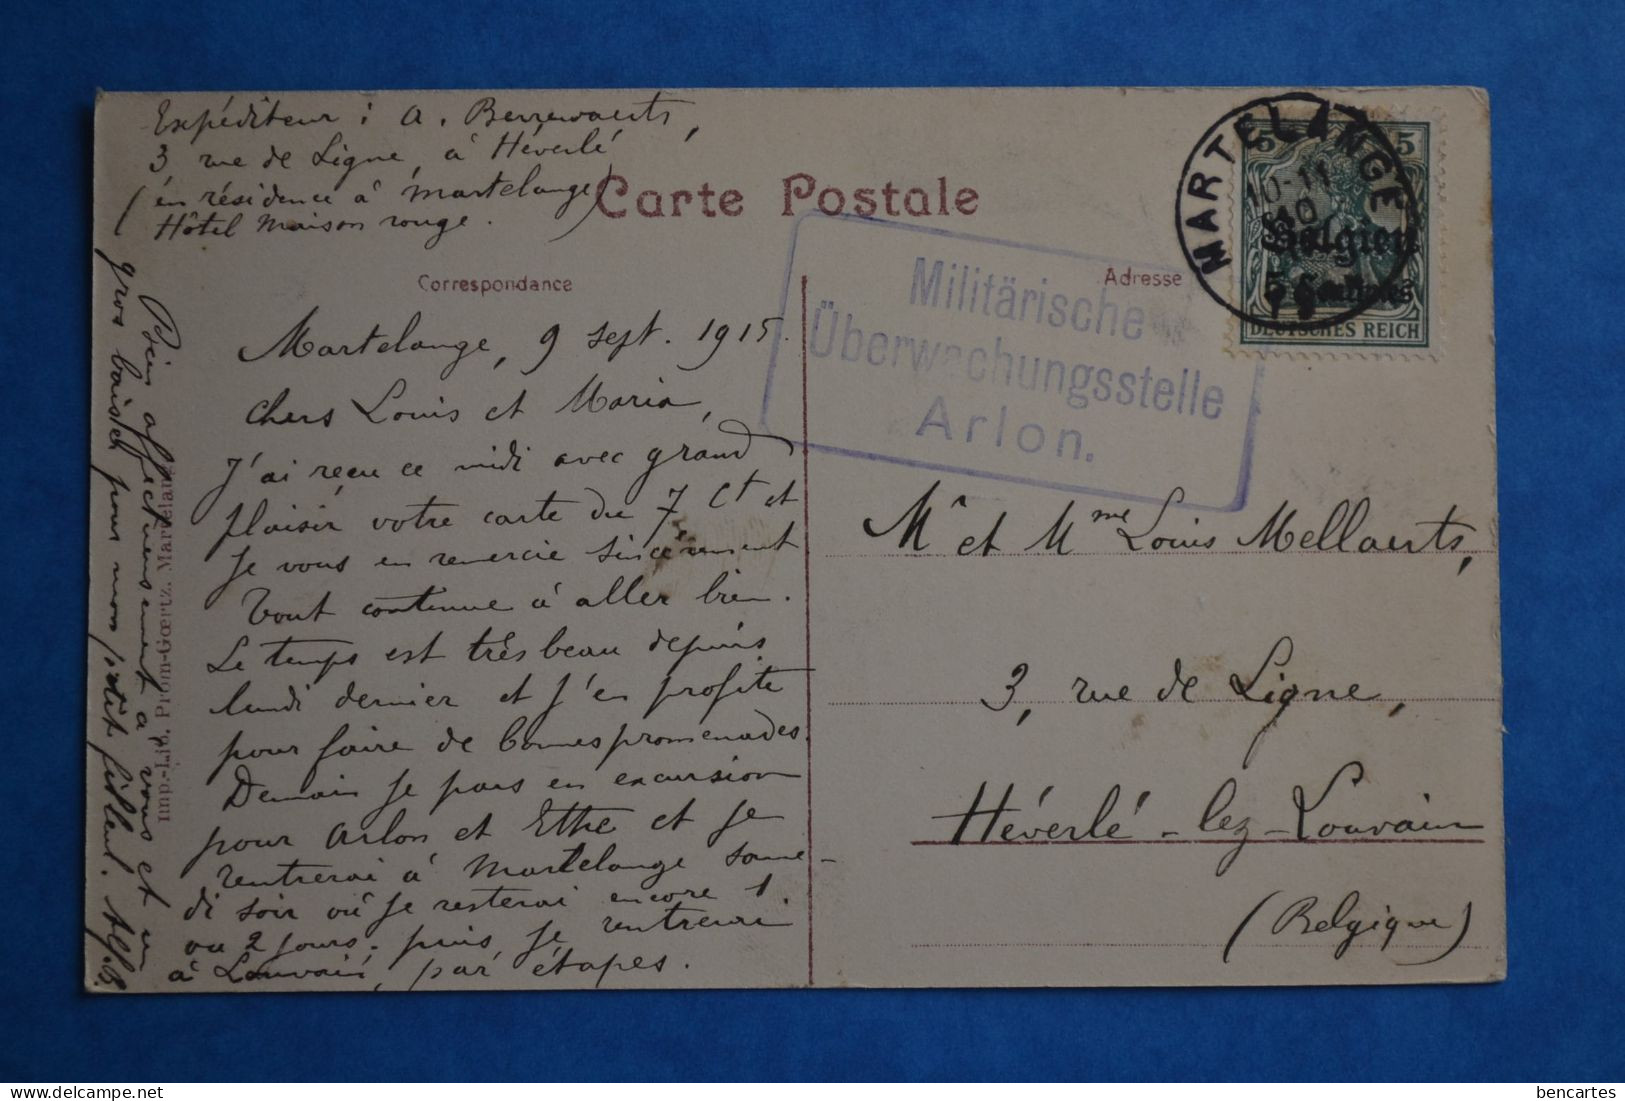 Expéditeur : A. Berrewaerts,
3, rue de Ligne, à Héverlé
(en résidence à Martelange)
Hôtel Maison rouge.
Carte Postale
Correspondance
Adresse
MARTELANGE
10-11
10
5 5
Belgien
5 Centimes
DEUTSCHES REICH
Militärische
Überwachungsstelle
Arlon.
Martelange, 9 sept. 1915.
Chers Louis et Maria,
J'ai reçu ce midi avec grand
plaisir votre carte du 7 Ct et
je vous en remercie sincèrement
Tout continue à aller bien.
Le temps est très beau depuis
lundi dernier et j'en profite
pour faire de bonnes promenades.
Demain je pars en excursion
pour Arlon et Ethe et je
rentrerai à Martelange same-
di soir où je resterai encore 1
ou 2 jours. puis je rentrerai
à Louvain, par étapes.
Bien affectueusement à vous et un
gros baiser pour mon petit filleul. Alf. B.
Imp.-Lib. Prom-Gœrtz. Martelange
Mr et Mme Louis Mellaerts,
3, rue de Ligne,
Héverlé-lez-Louvain
(Belgique)
bencartes